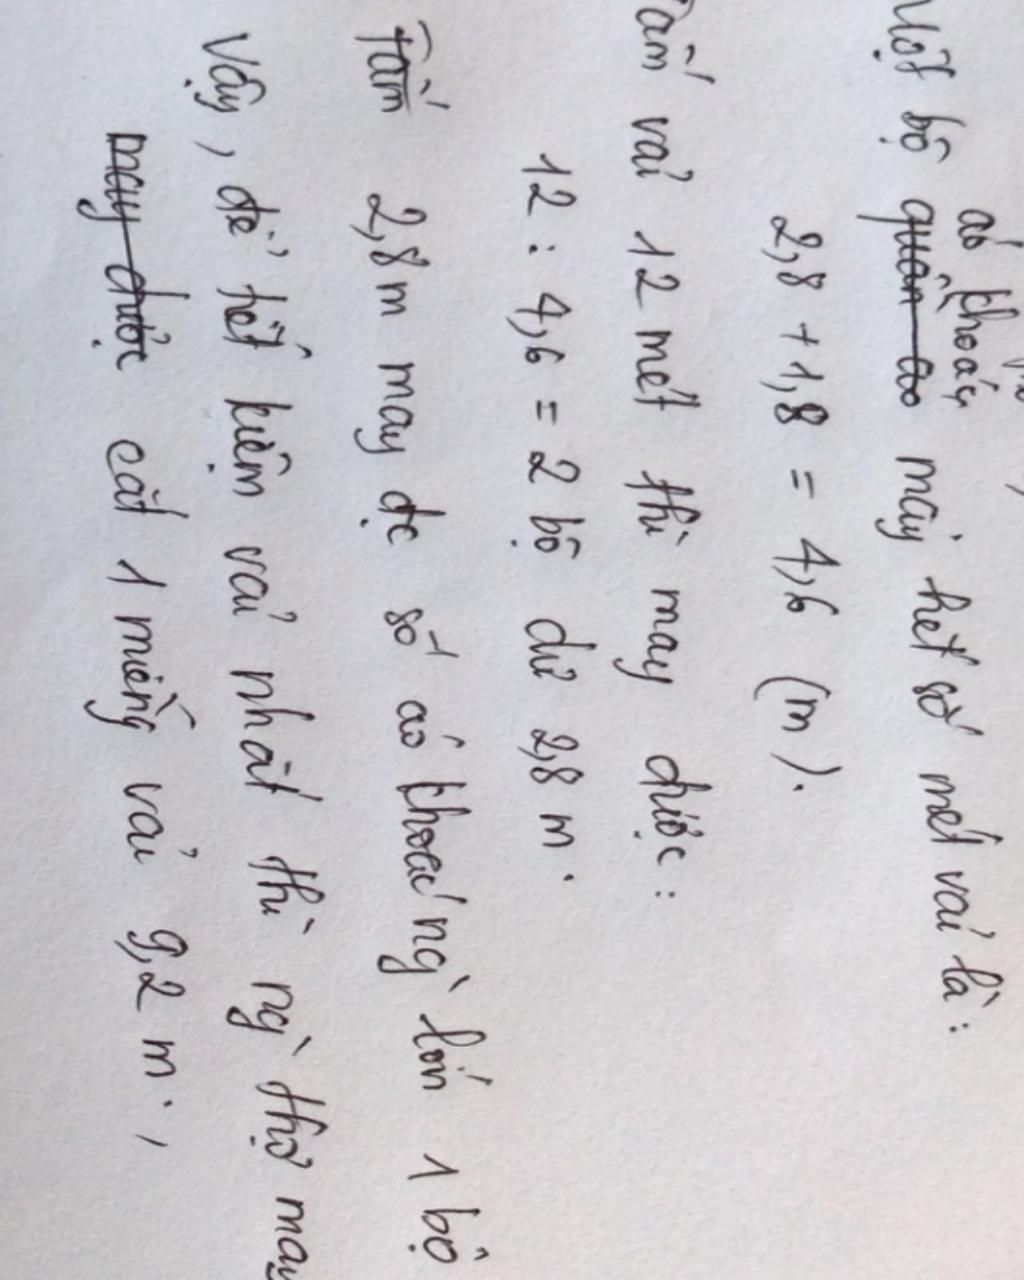 áo khoác
Một bộ quần áo may hết số mét vải là:
2,8 + 1,8 = 4,6 (m).
Tấm vải 12 mét thì may được:
12 : 4,6 = 2 bộ dư 2,8 m.
Tấm 2,8 m may đc số áo khoác ng` lớn 1 bộ
Vậy, để tiết kiệm vải nhất thì ng` thợ may
may được cắt 1 miếng vải 9,2 m.